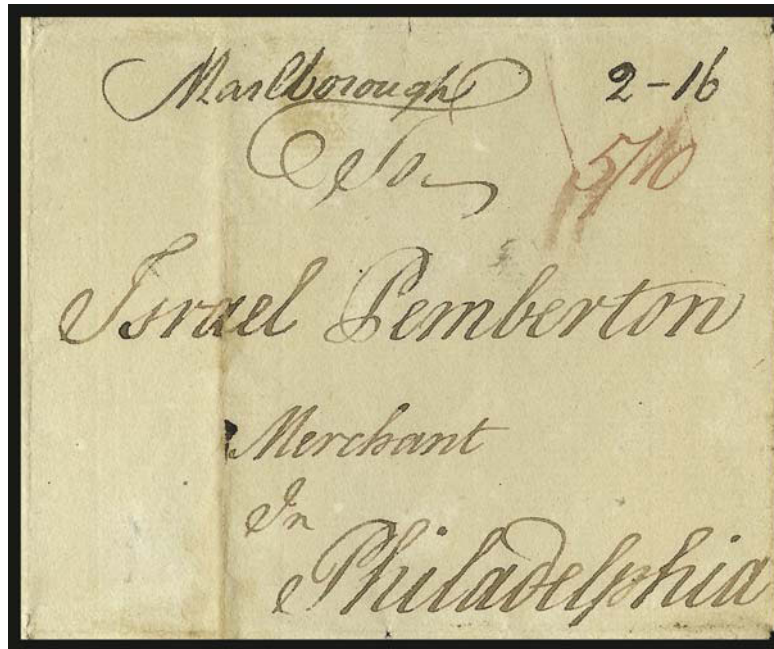 Marlborough 2-16
To 5/10
Israel Pemberton
Merchant
In
Philadelphia